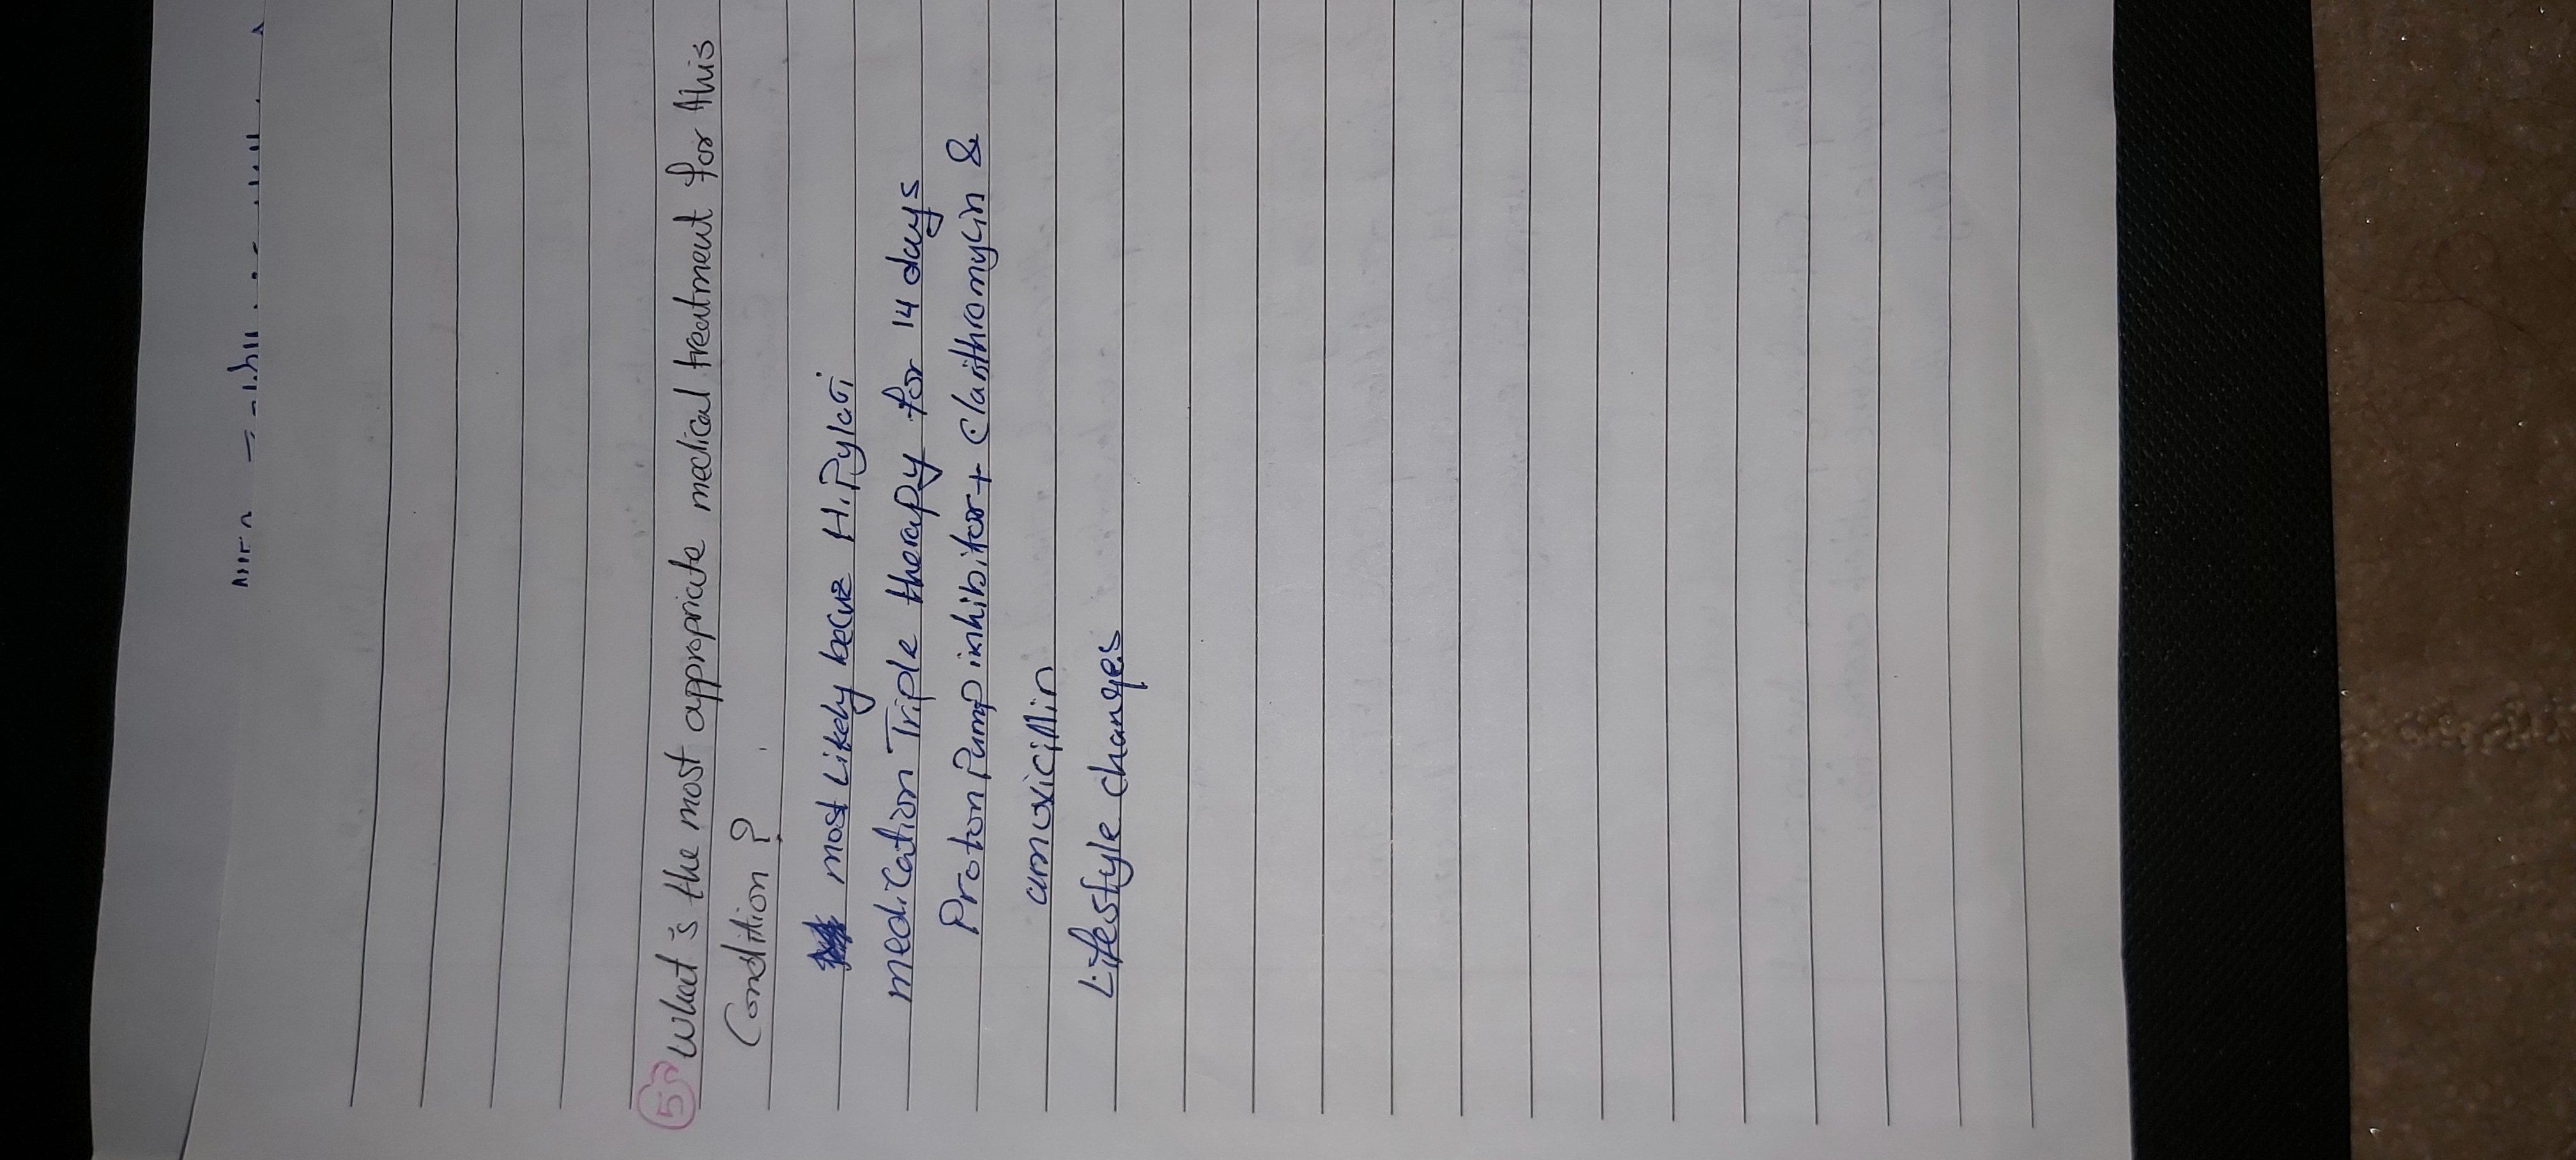 5 What is the most appropriate medical treatment for this
Condition ?
most Likely becuz H.Pylori
medication Triple therapy for 14 days
Proton Pump inhibitor + Clarithromycin &
amoxicillin
Lifestyle changes